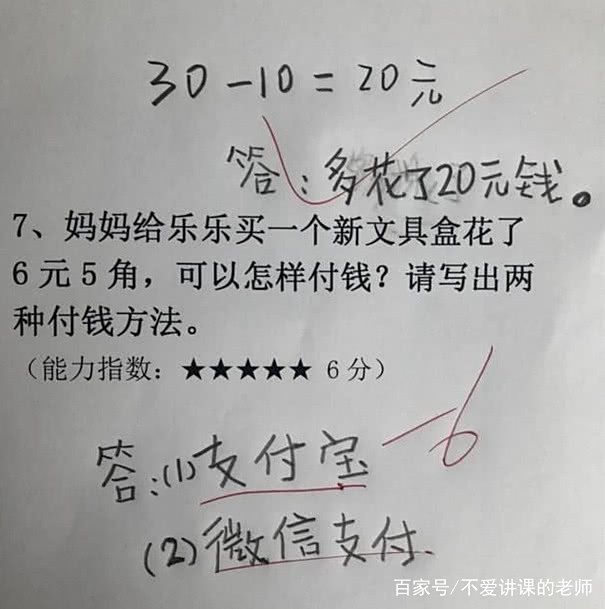 30-10=20元
答：多花了20元钱。
7、妈妈给乐乐买一个新文具盒花了
6元5角，可以怎样付钱？请写出两
种付钱方法。
（能力指数：★★★★★ 6分）
-6
答：(1)支付宝
(2)微信支付.
百家号/不爱讲课的老师